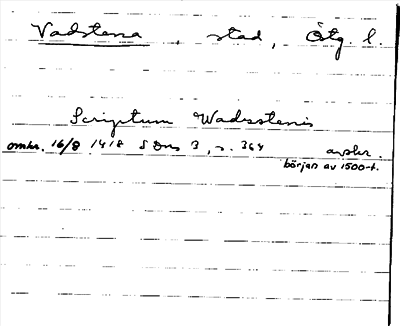 Vadstena, stad, Ötg. l.
Scriptum Wadsstenis
omkr. 16/8 1418 SDns 3, s. 364 avskr.
början av 1500-t.